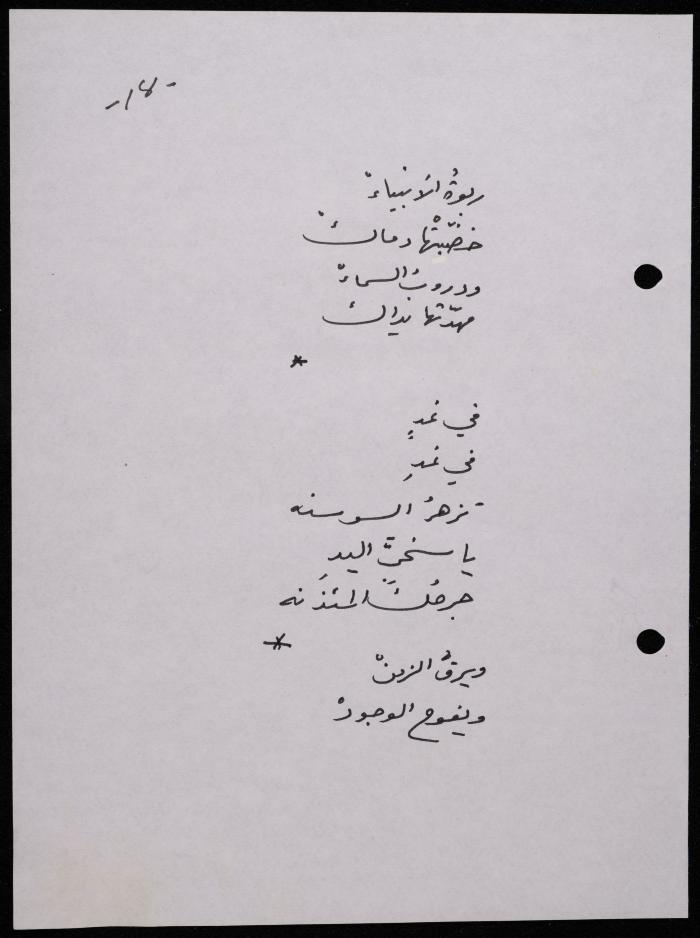 ربوةُ الأنبياءْ
خضّبَتْها دماكْ
ودروبُ السماءْ
مهدّتها يداكْ
*
في غدٍ
في غدٍ
تزهرُ السوسنه
يا سخيَّ اليدِ
جرحُكَ المئذنه
*
ويرقُّ الزمنْ
ويفوح الوجودْ